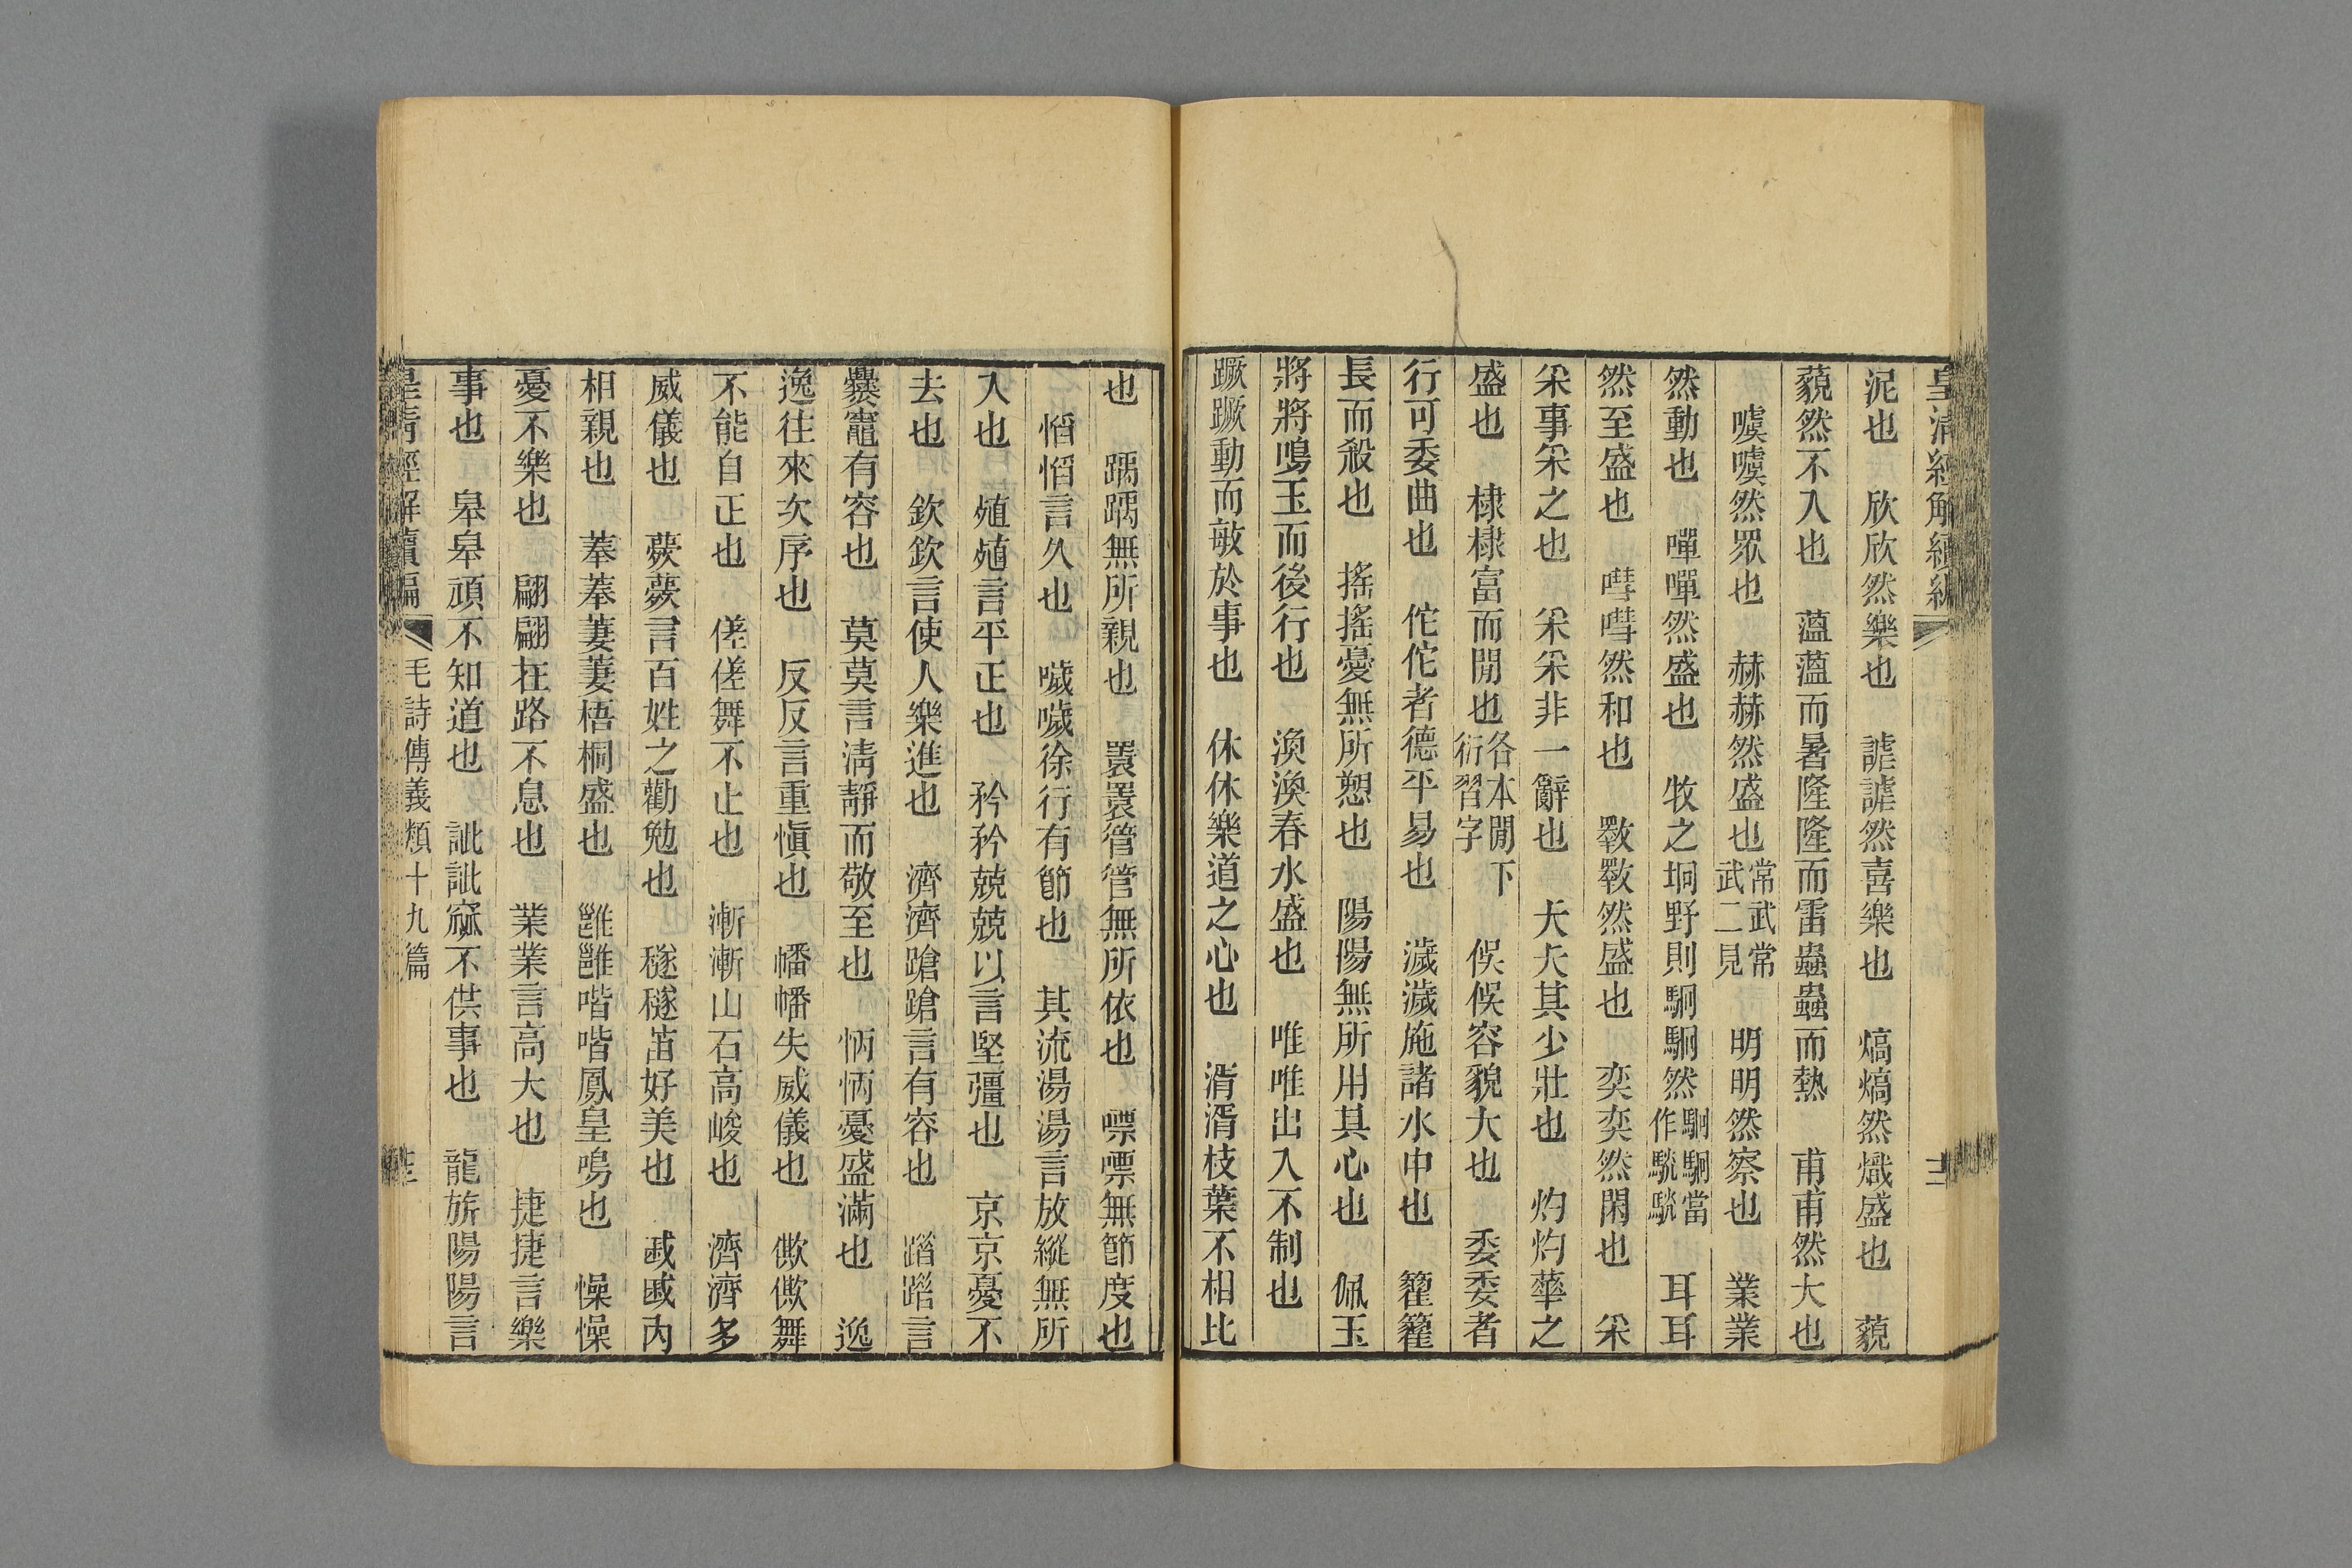 皇清經解續編
泥也　欣欣然樂也　謔謔然喜樂也　熇熇然熾盛也　藐
藐然不入也　薀薀而暑隆隆而雷蟲蟲而熱　甫甫然大也
噳噳然眾也　赫赫然盛也常武常武二見　明明然察也　業業
然動也　嘽嘽然盛也　牧之坰野則駉駉然駉駉當作驍驍　耳耳
然至盛也　嘒嘒然和也　斁斁然盛也　奕奕然閑也　采
采事采之也　采采非一辭也　夭夭其少壯也　灼灼華之
盛也　棣棣富而閒也各本閒下衍習字　俁俁容貌大也　委委者
行可委曲也　佗佗者德平易也　濊濊施諸水中也　籊籊
長而殺也　搖搖憂無所愬也　陽陽無所用其心也　佩玉
將將鳴玉而後行也　渙渙春水盛也　唯唯出入不制也
蹶蹶動而敏於事也　休休樂道之心也　湑湑枝葉不相比
也　踽踽無所親也　睘睘管管無所依也　嘌嘌無節度也
慆慆言久也　噦噦徐行有節也　其流湯湯言放縱無所
入也　殖殖言平正也　矜矜兢兢以言堅彊也　京京憂不
去也　欽欽言使人樂進也　濟濟蹌蹌言有容也　踖踖言
爨竈有容也　莫莫言淸靜而敬至也　怲怲憂盛滿也　逸
逸往來次序也　反反言重愼也　幡幡失威儀也　僛僛舞
不能自正也　傞傞舞不止也　漸漸山石高峻也　濟濟多
威儀也　蹶蹶言百姓之勸勉也　穟穟苗好美也　戚戚內
相親也　菶菶萋萋梧桐盛也　雝雝喈喈鳳皇鳴也　懆懆
憂不樂也　翩翩在路不息也　業業言高大也　捷捷言樂
事也　皋皋頑不知道也　訿訿窳不供事也　龍旂陽陽言
皇清經解續編　毛詩傳義類十九篇